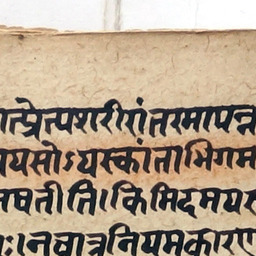 त्प्रेत्यशरीरांतरमापन्न
यसोऽयस्कांताभिगम
षतीति।किमिदमयस
ः।नचात्रनियमकारण